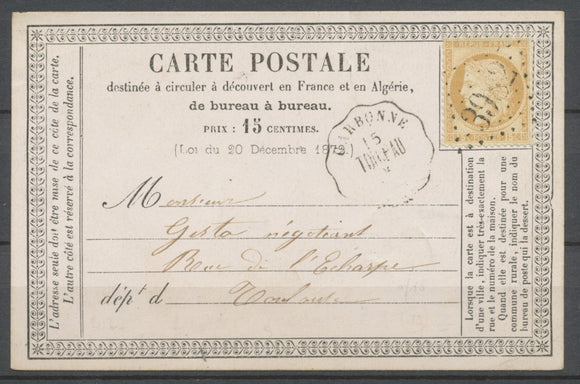 CARTE POSTALE
destinée à circuler à découvert en France et en Algérie,
de bureau à bureau.
PRIX : 15 CENTIMES.
(Loi du 20 Décembre 1872)
L'adresse seule doit être mise de ce côté de la carte.
L'autre côté est réservé à la correspondance.
NARBONNE
15
REPUB. FRANC.
3982
Monsieur
Gesta négotiant
Rue de l'Echarpe
dép.t d Toulouse
Lorsque la carte est à destination
d'une ville, indiquer très-exactement la
rue et le numéro de la maison.
Quand elle est destinée pour une
commune rurale, indiquer le nom du
bureau de poste qui la dessert.